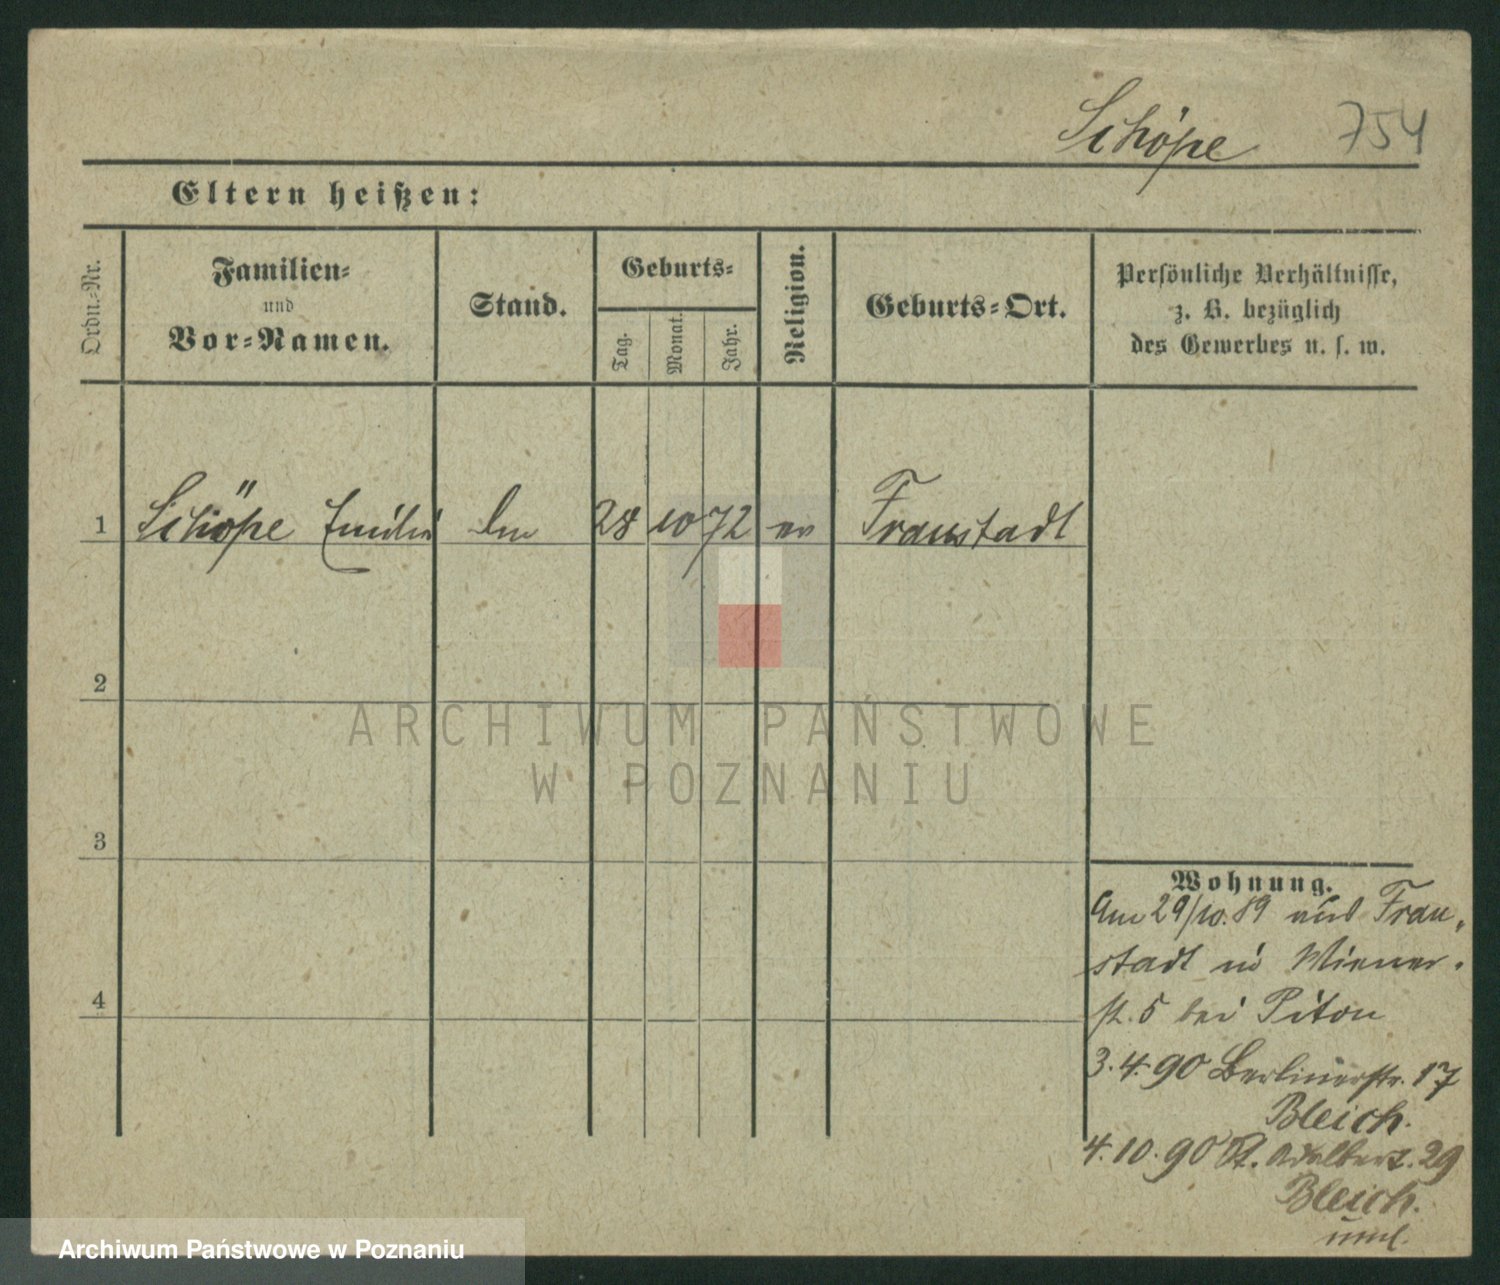 Schöpe 754
Eltern heißen:
Ordn.-Nr.
Familien-
und
Vor-Namen.
Stand.
Geburts-
Tag.
Monat.
Jahr.
Religion.
Geburts-Ort.
Persönliche Verhältnisse,
z. B. bezüglich
des Gewerbes u. s. w.
1 Schöpe Emilie 28 10 72 ev Fraustadt
2
3
4
Wohnung.
Am 29/10.89 aus Frau-
stadt in Wiener-
st. 5 bei Piton
3.4.90 Berlinerstr. 17
Bleich.
4.10.90 St. Adalbert. 29
Bleich.
ARCHIWUM PAŃSTWOWE
W POZNANIU
Archiwum Państwowe w Poznaniu